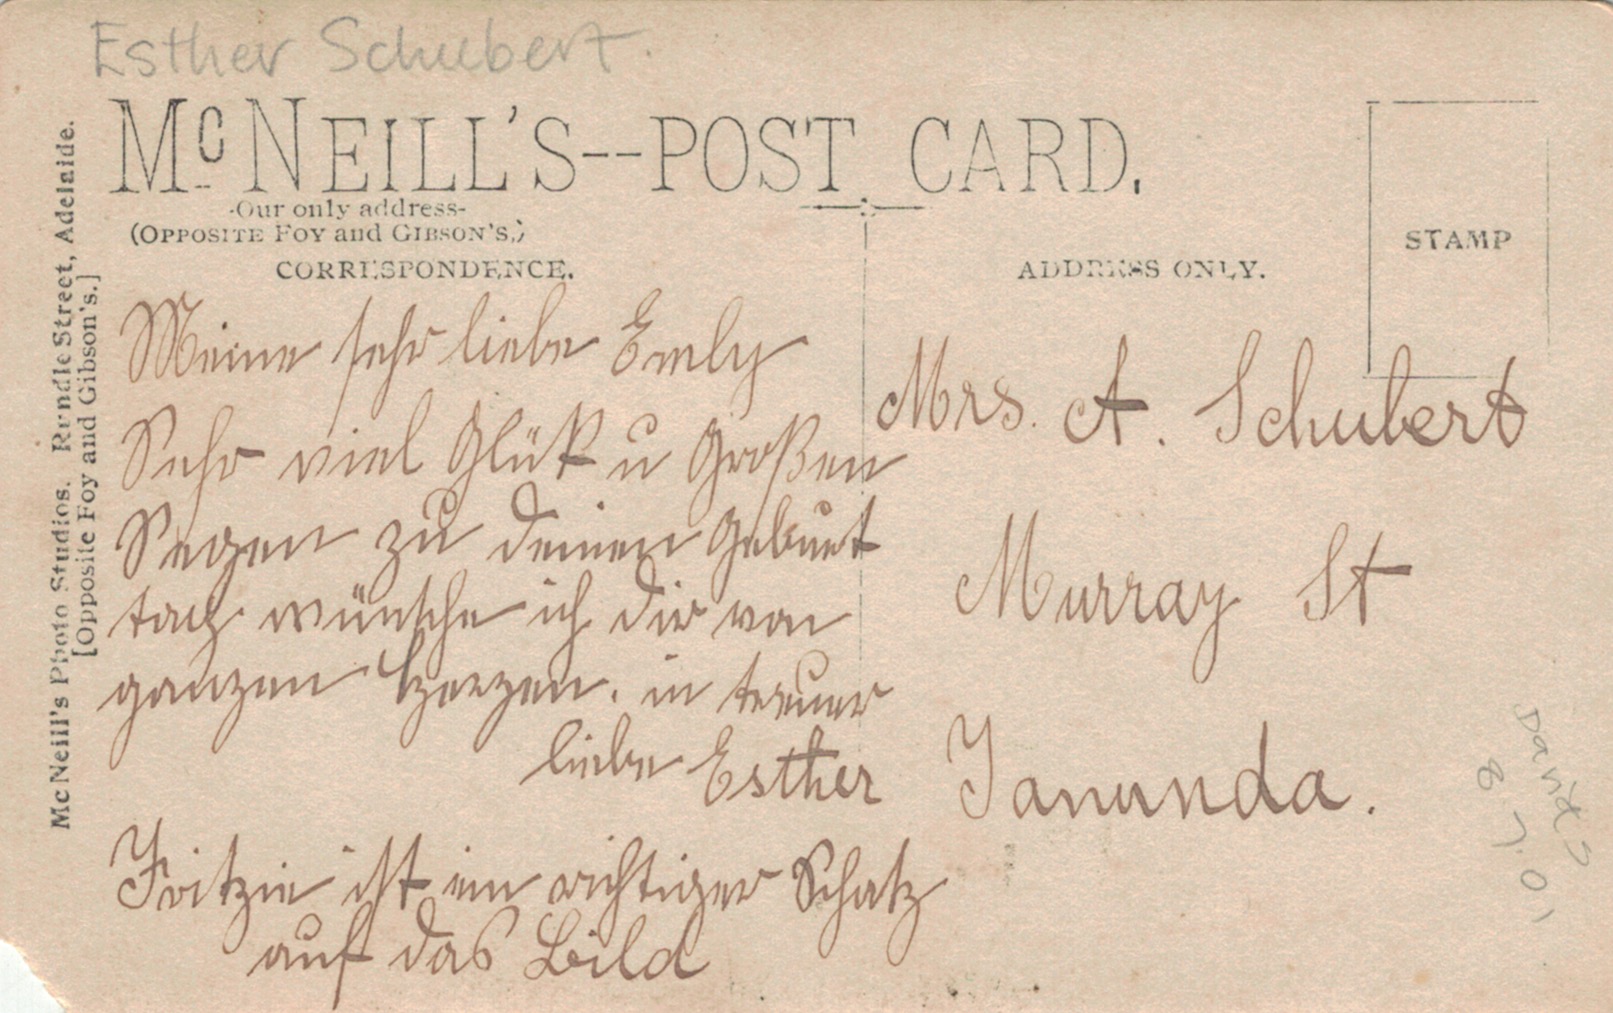 Esther Schubert.
McNEILL'S--POST CARD.
-Our only address-
(OPPOSITE FOY and GIBSON'S,)
CORRESPONDENCE.
ADDRESS ONLY.
STAMP
McNeill's Photo Studios. Rundle Street, Adelaide.
[Opposite Foy and Gibson's.]
Meine sehr liebe Emly
Sehr viel Glük u Großen
Segen zu deinen Geburt
tag wünsche ich dir von
ganzen Herzen. in treuer
liebe Esther
Fritzie ist ein richtiger Schatz
auf das Bild
Mrs. A. Schubert
Murray St
Tanunda.
Davids
8.7.01